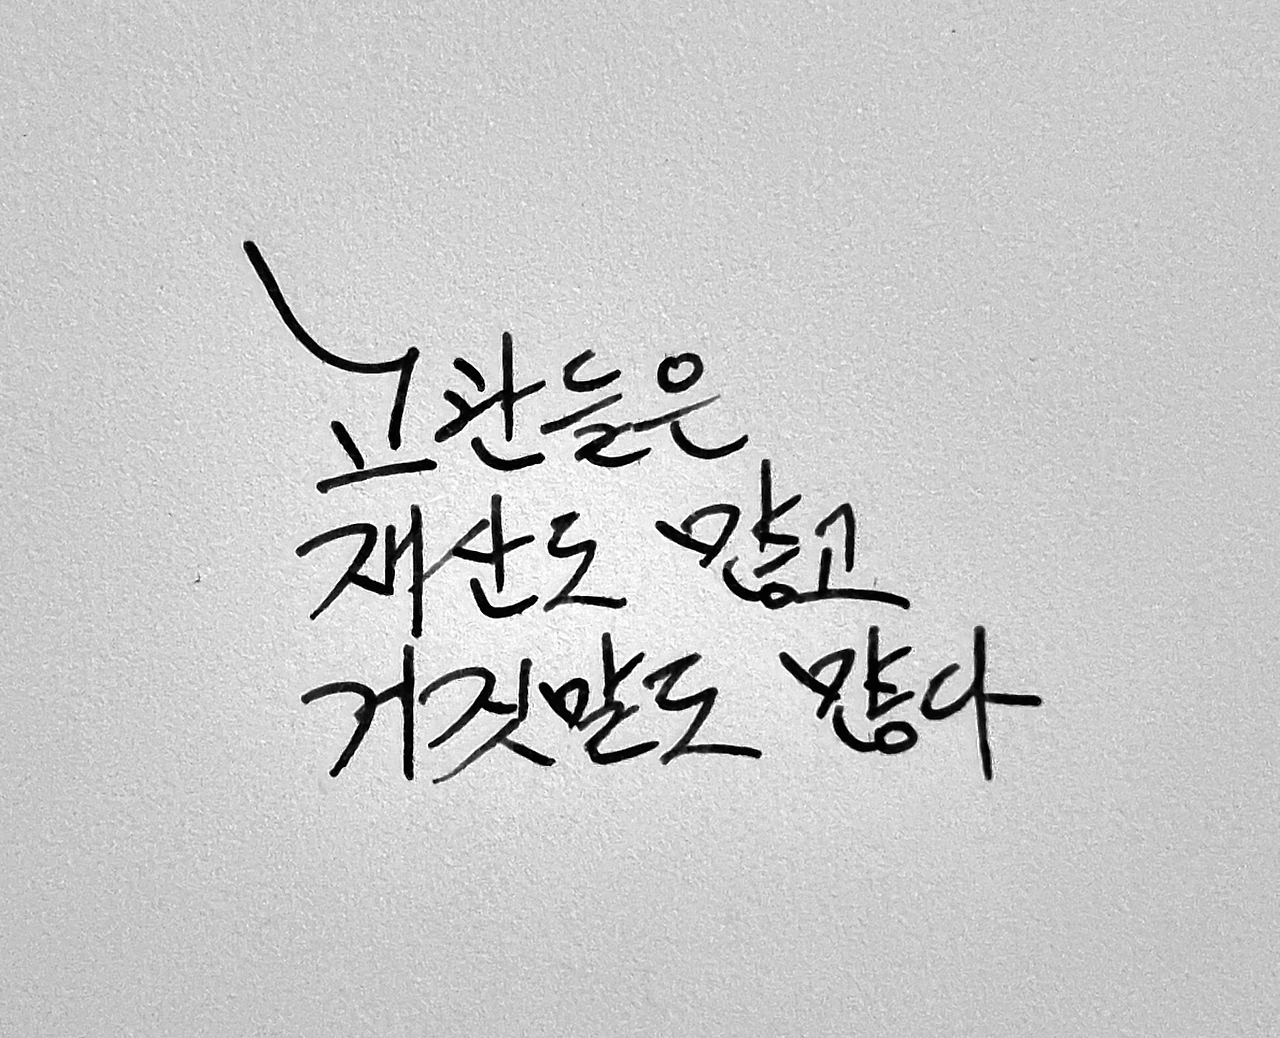 고관들은
재산도 많고
거짓말도 많다